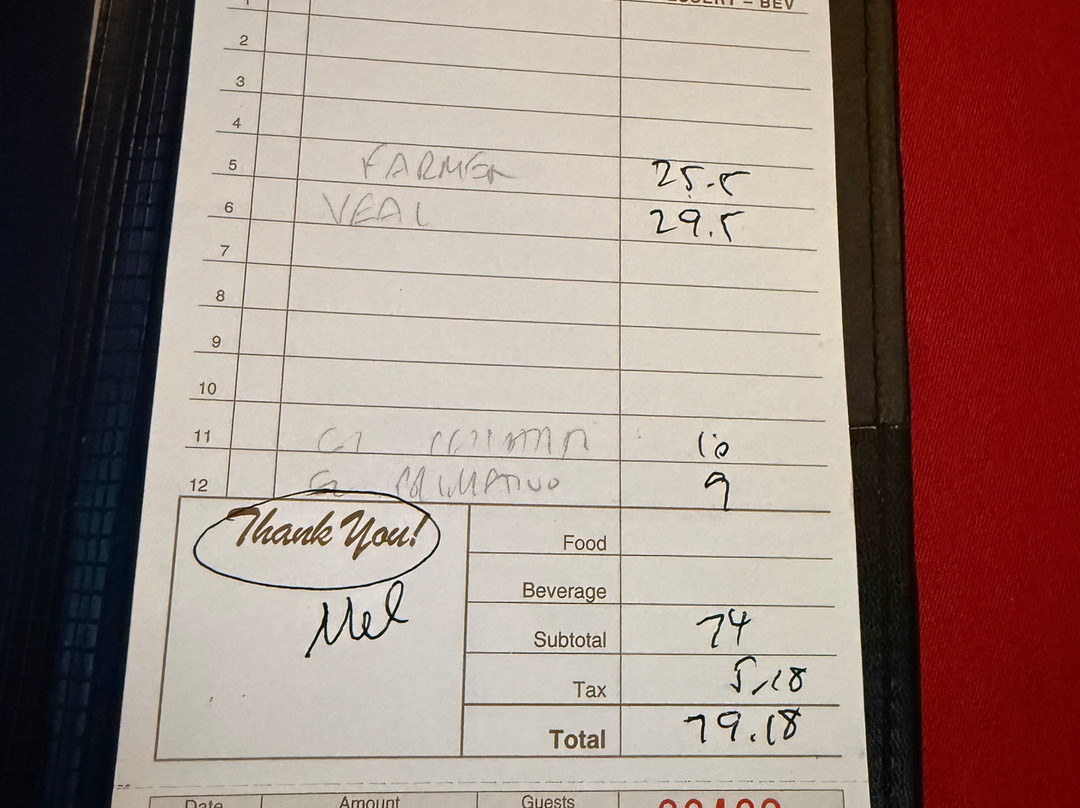 – BEV
1
2
3
4
5 FARMER 25.5
6 VEAL 29.5
7
8
9
10
11 10
12 9
Thank You!
Mel
Food
Beverage
Subtotal 74
Tax 5.18
Total 79.18
Date Amount Guests